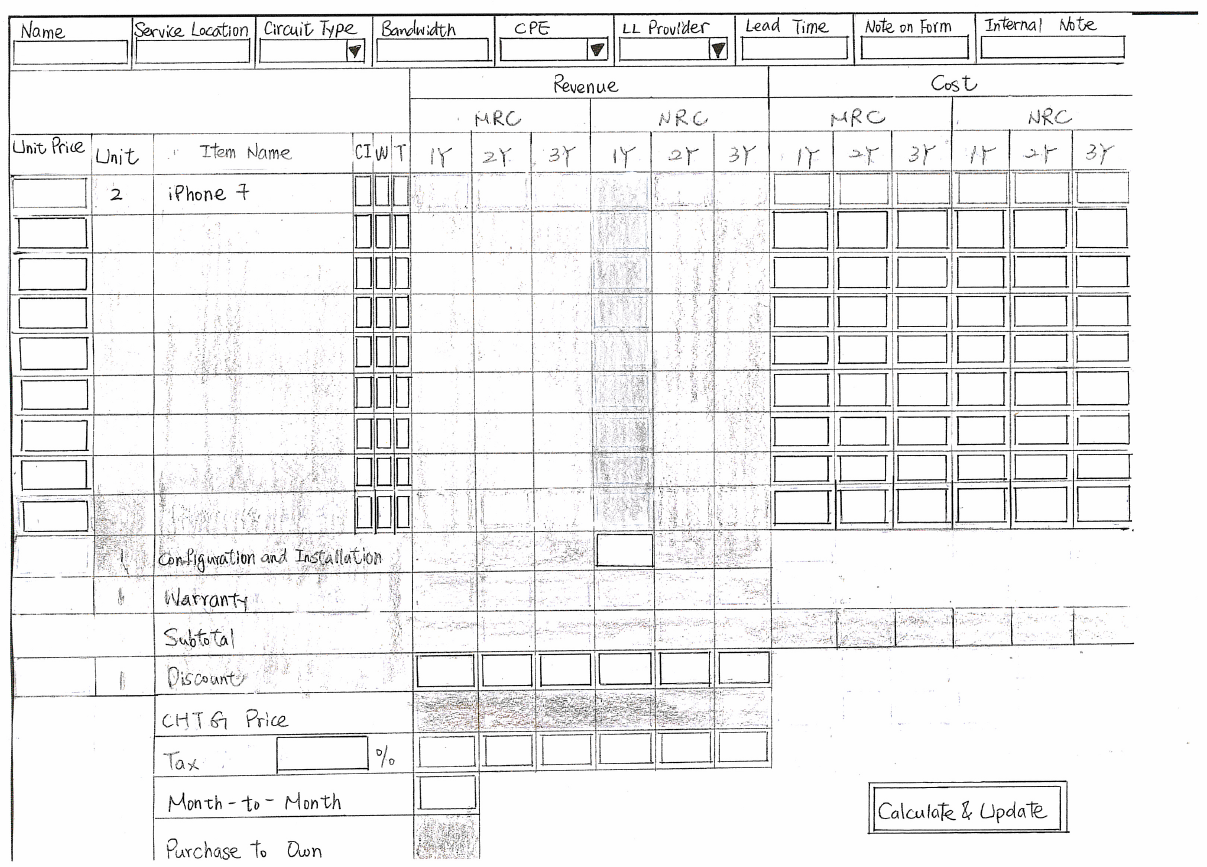 Name Service Location Circuit Type Bandwidth CPE LL Provider Lead Time Note on Form Internal Note
Revenue Cost
MRC NRC MRC NRC
Unit Price Unit Item Name CI W T 1Y 2Y 3Y 1Y 2Y 3Y 1Y 2Y 3Y 1Y 2Y 3Y
2 iPhone 7
1 Configuration and Installation
1 Warranty
Subtotal
1 Discount
CHTG Price
Tax %
Month-to-Month
Calculate & Update
Purchase to Own